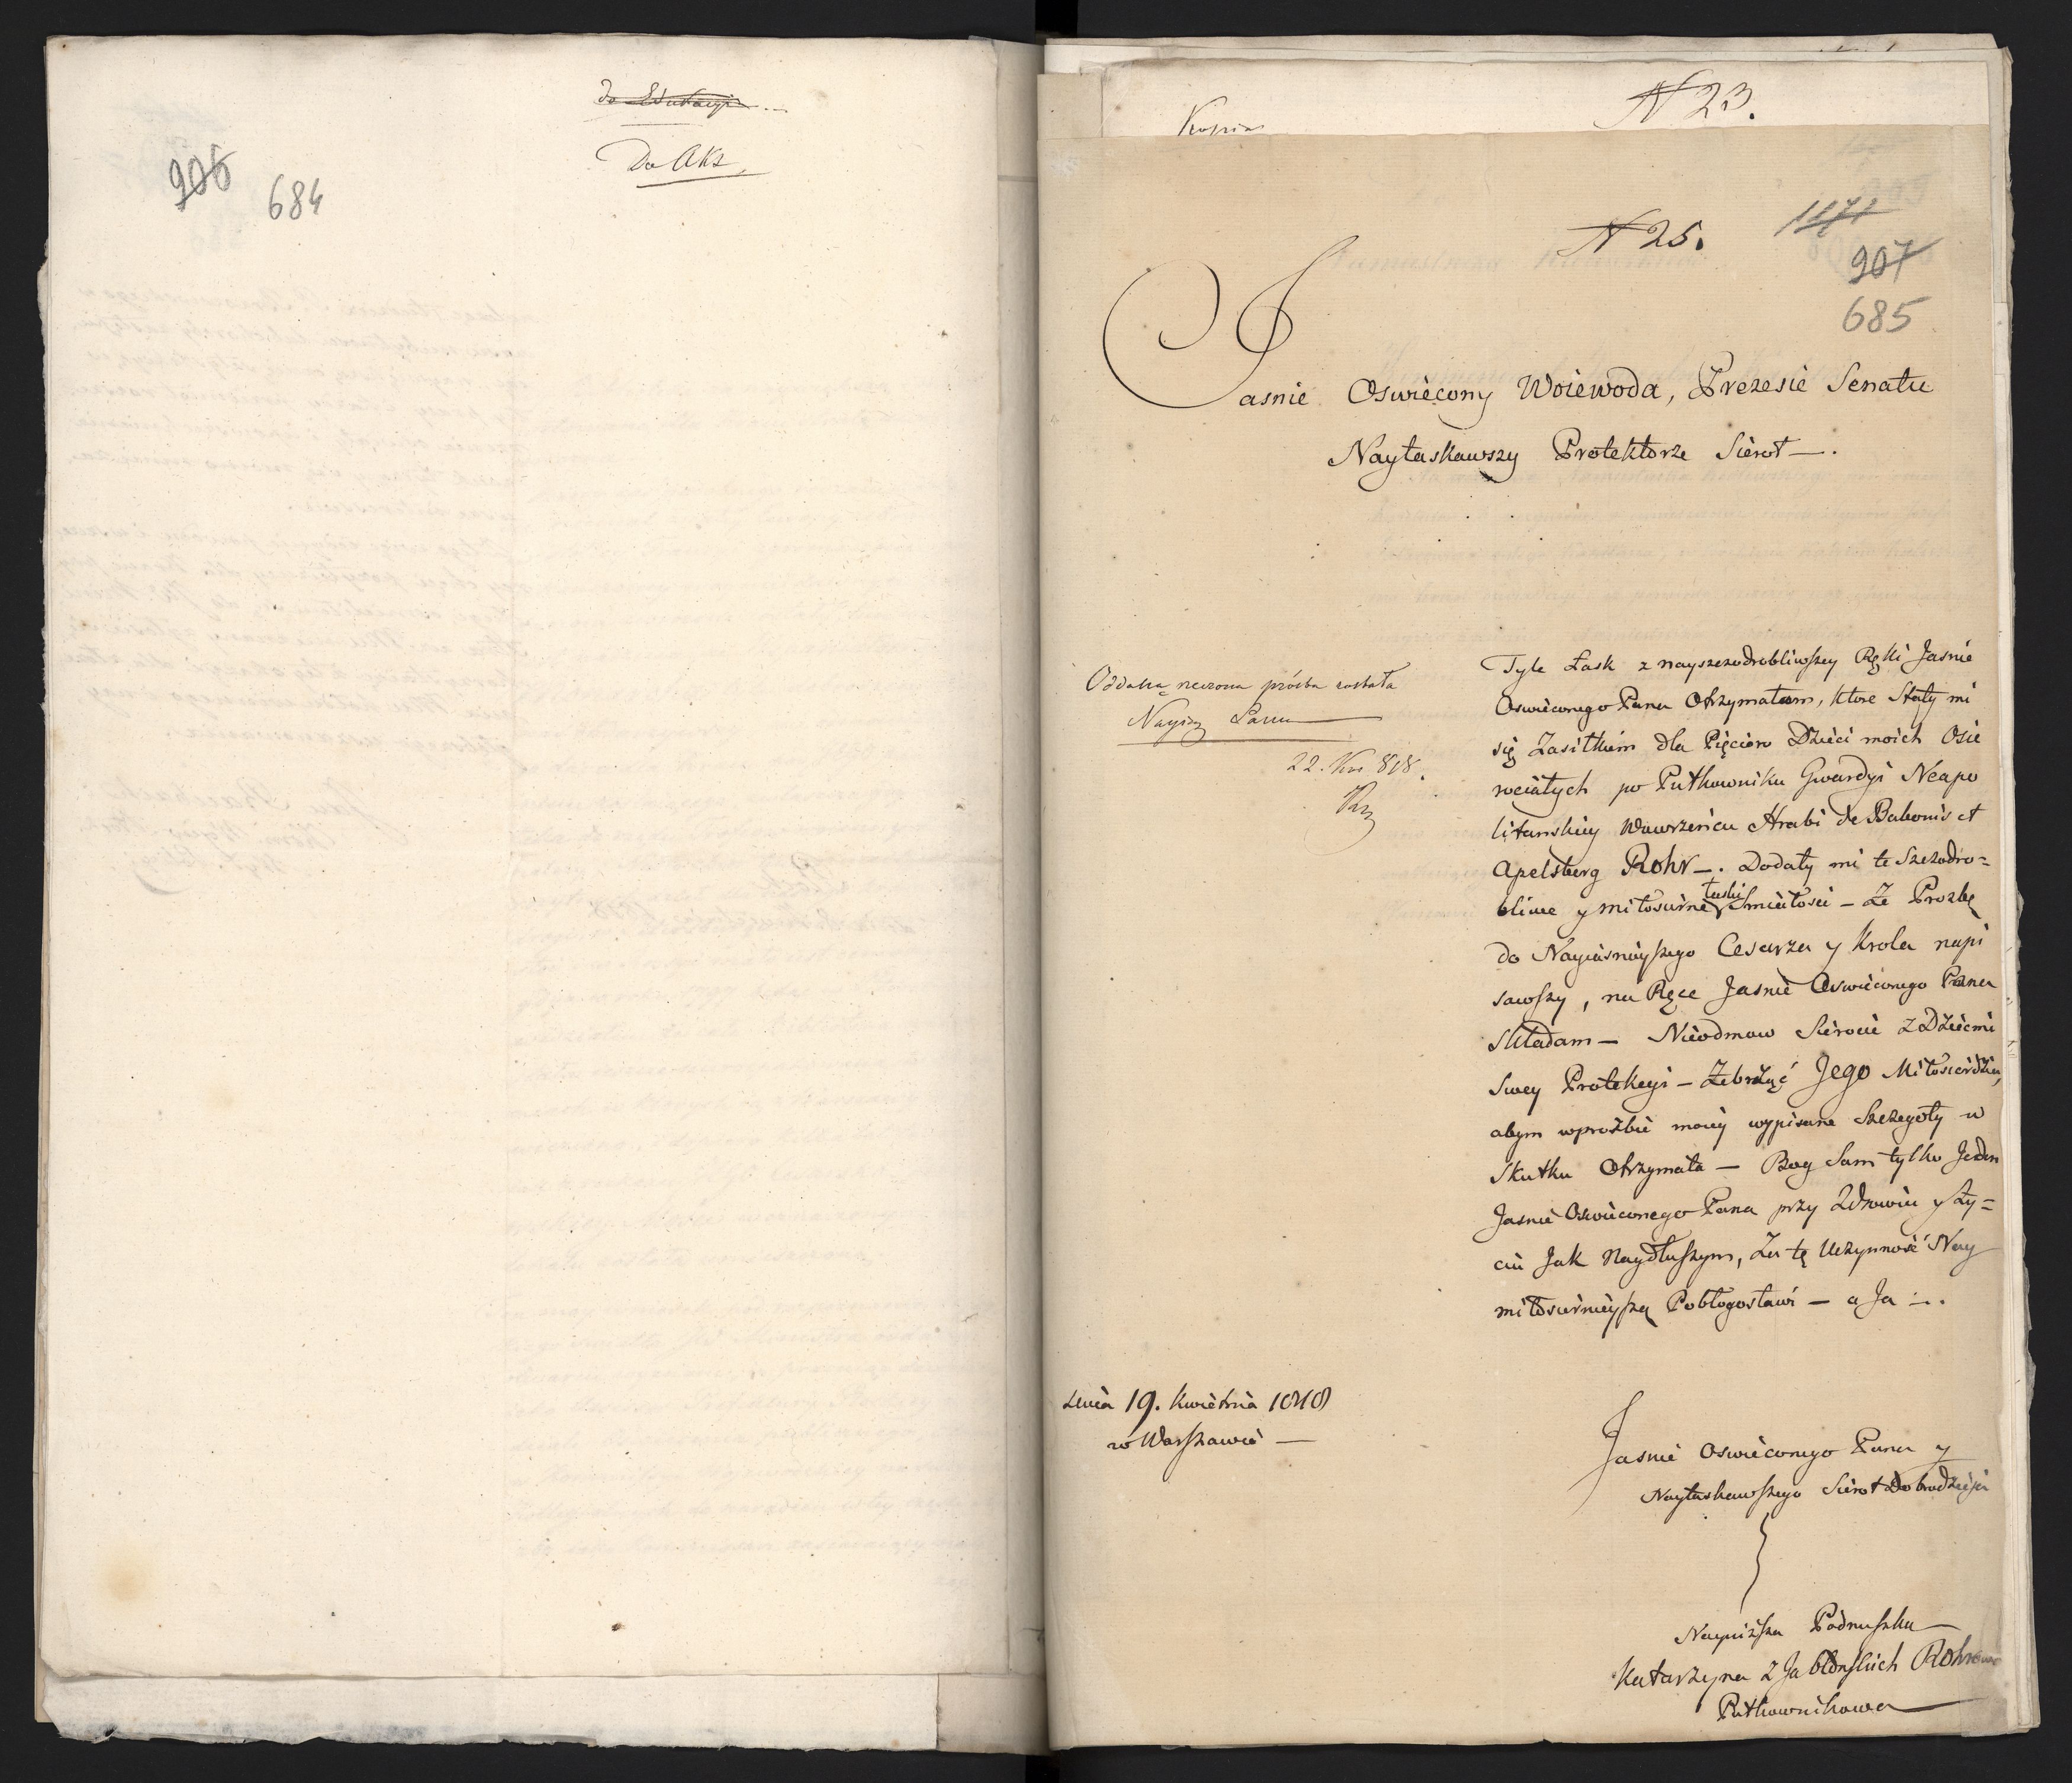 do Edukacyi
Do Akt
906
684
Kopia
N 23.
N 25.
1171
907
685
Jasnie Oswiecony Woiewoda, Prezesie Senatu
Naytaskawszy Protektorze Sierot —.
Oddana rzeczona prózba została
Nayias Panu
22. Kw 818.
Tyle Łask z nayszczodrobliwszey Ręki Jasnie
Oswieconego Pana Otrzymałam, ktore Stały mi
się Zasiłkiem dla Pięcioro Dzieci moich Osie
rociałych po Pułkowniku Gwardyi Neapo
litanskiey Wawrzeńcu Hrabi de Babonis et
Apelsberg Rohr —. Dodały mi te Szczodro=
bliwe y miłosierne łaski Smiałosci — Ze Prozbę
do Nayiasnieyszego Cesarza y Krola napi
sawszy, na Ręce Jasnie Oswieconego Pana
Składam — Nieodmow Sierocie z Dziecmi
Swey Protekcyi — Zebrząć Jego Miłosierdzia,
abym wprozbie moiey wypisane Szczegoły w
Skutku Otrzymała — Bog Sam tylko Jeden
Jasnie Oswieconego Pana przy Zdrowiu y Ży=
ciu Jak Naydłuszym, Za tę Uczynność Nay
miłosiernieyszą Pobłogosławi — a Ja —.
Dnia 19. Kwietnia 1818
w Warszawie —
Jasnie Oswieconego Pana y
Naytaskawszego Sierot Dobrodzieja
Nayniższa Podnuszka
Katarzyna z Jabłonskich Rohrowa
Pułkownikowa